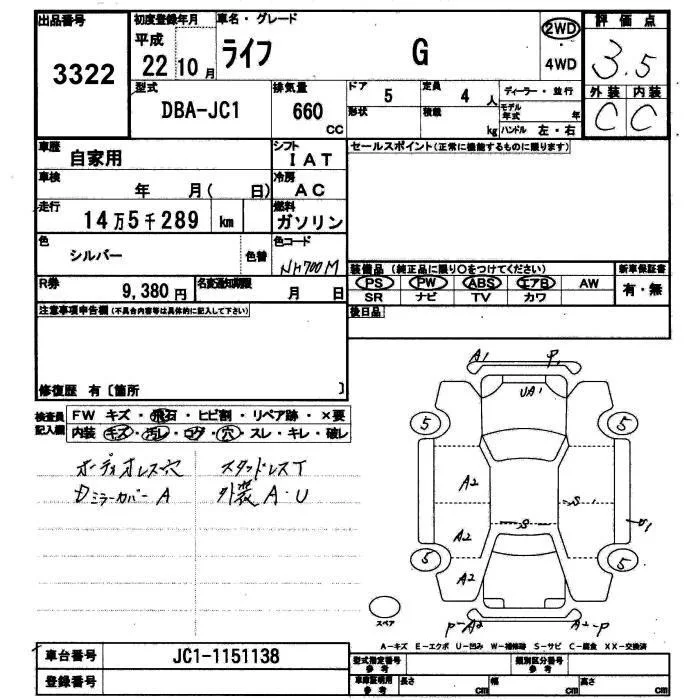 出品番号
3322
初度登録年月
平成
22 10 月
車名・グレード
ライフ G
2WD
・
4WD
評価点
3.5
外装 内装
C C
型式
DBA-JC1
排気量
660
cc
ドア
5
形状
定員
4 人
積載
kg
ディーラー・並行
モデル年式 年
ハンドル 左・右
車歴
自家用
シフト
I A T
車検
年 月( 日)
冷房
A C
走行
14万5千289 km
燃料
ガソリン
色
シルバー
色替
色コード
NH700M
R券
9,380 円
名変通知期限
月 日
セールスポイント(正常に機能するものに限ります)
装備品 (純正品に限り○をつけてください)
PS PW ABS エアB AW
SR ナビ TV カワ
新車保証書
有・無
後日品
注意事項申告欄 (不具合内容等は具体的に記入して下さい)
修復歴 有〔箇所 〕
検査員記入欄
FW キズ・飛石・ヒビ割・リペア跡・×要
内装 キズ・汚レ・コゲ・穴・スレ・キレ・破レ
オーディオレス穴 スタッドレスT
DミラーカバーA 外装A・U
A1
P1
UA1
5
5
A2
S1
S
U1
A2
5
5
A2
スペア
P-A2
A2-P
A-キズ E-エクボ U-凹み W-補修跡 S-サビ C-腐食 XX-交換済
車台番号
JC1-1151138
登録番号
型式指定番号
参考
類別区分番号
参考
車庫証明用
参考
長さ cm
幅 cm
高さ cm